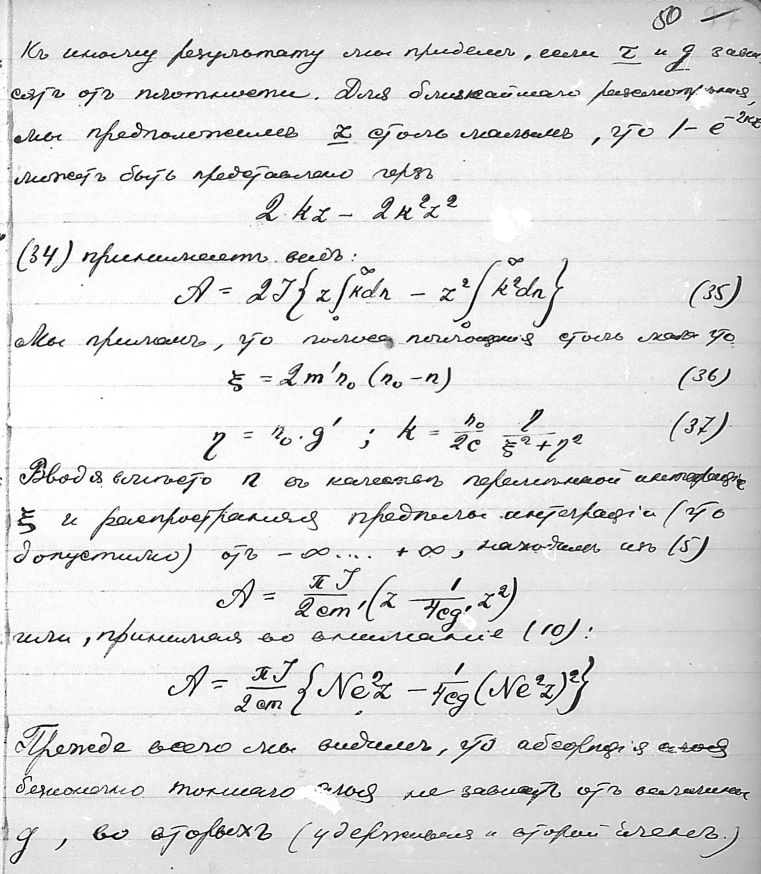 50 —
Къ иному результату мы придемъ, если z и g зави-
сятъ отъ плотности. Для ближайшаго разсмотрѣнія,
мы предположимъ z столь малымъ, что 1 − e^{−2kz}
можетъ быть представлено черезъ
2kz − 2k²z²
(34) принимаетъ видъ:
A = 2J { z ∫₀^∞ k dn − z² ∫₀^∞ k² dn } (35)
Мы примемъ, что полоса поглощенія столь мала что
ξ = 2m'n₀ (n₀ − n) (36)
η = n₀ · g' ; k = n₀/2c η/(ξ² + η²) (37)
Вводя вмѣсто n въ качествѣ перемѣнной интеграціи
ξ и распространяя предѣлы интеграціи (что
допустимо) отъ −∞ .... +∞, находимъ изъ (5)
A = πJ/2cm' (z − 1/4cg' z²)
или, принимая во вниманіе (10):
A = πJ/2cm { Ne²z − 1/4cg (Ne²z)² }
Прежде всего мы видимъ, что абсорпція слоя
безконечно тонкаго слоя не зависитъ отъ величины
g, во вторыхъ (удерживая и второй членъ)